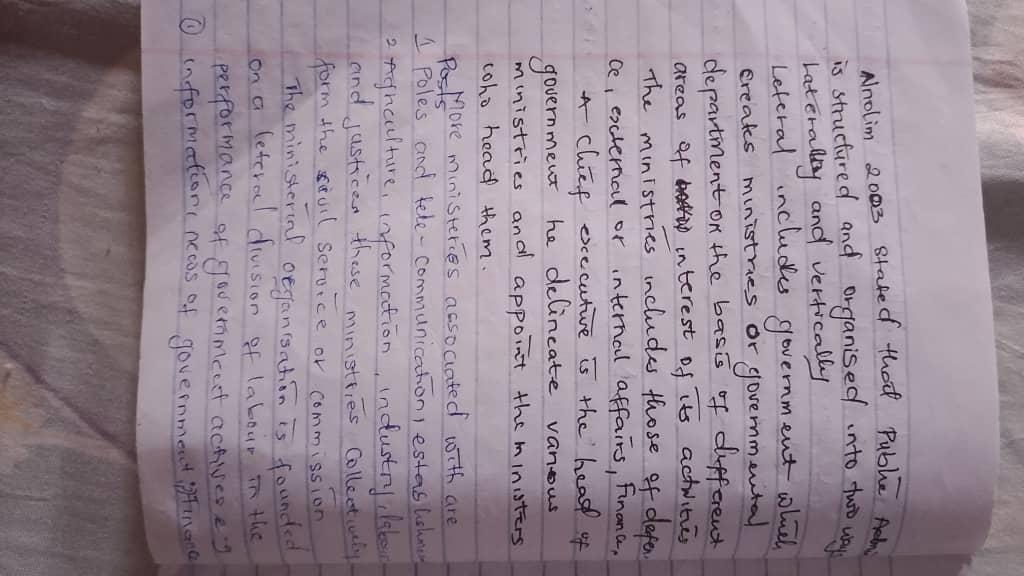 Afolim 2003 stated that Public Adm
is structured and organised into two way
Laterally and vertically
Lateral includes government which
creates ministries or governmental
department on the basis of different
areas of interest of its activities
The ministries includes those of defen
ce, external or internal affairs, Finance,
A chief executive is the head of
government he delinate various
ministries and appoint the ministers
who head them.
More ministeries associated with are
1 Poles and tele-communication, estas
2 Agriculture, information, industry, labour
and justices these ministries collectively
form the civil service or commission
The ministerial organisation is founded
on a leteral division of labour in the
performance of government actives e.g
① information, news of government, Finance